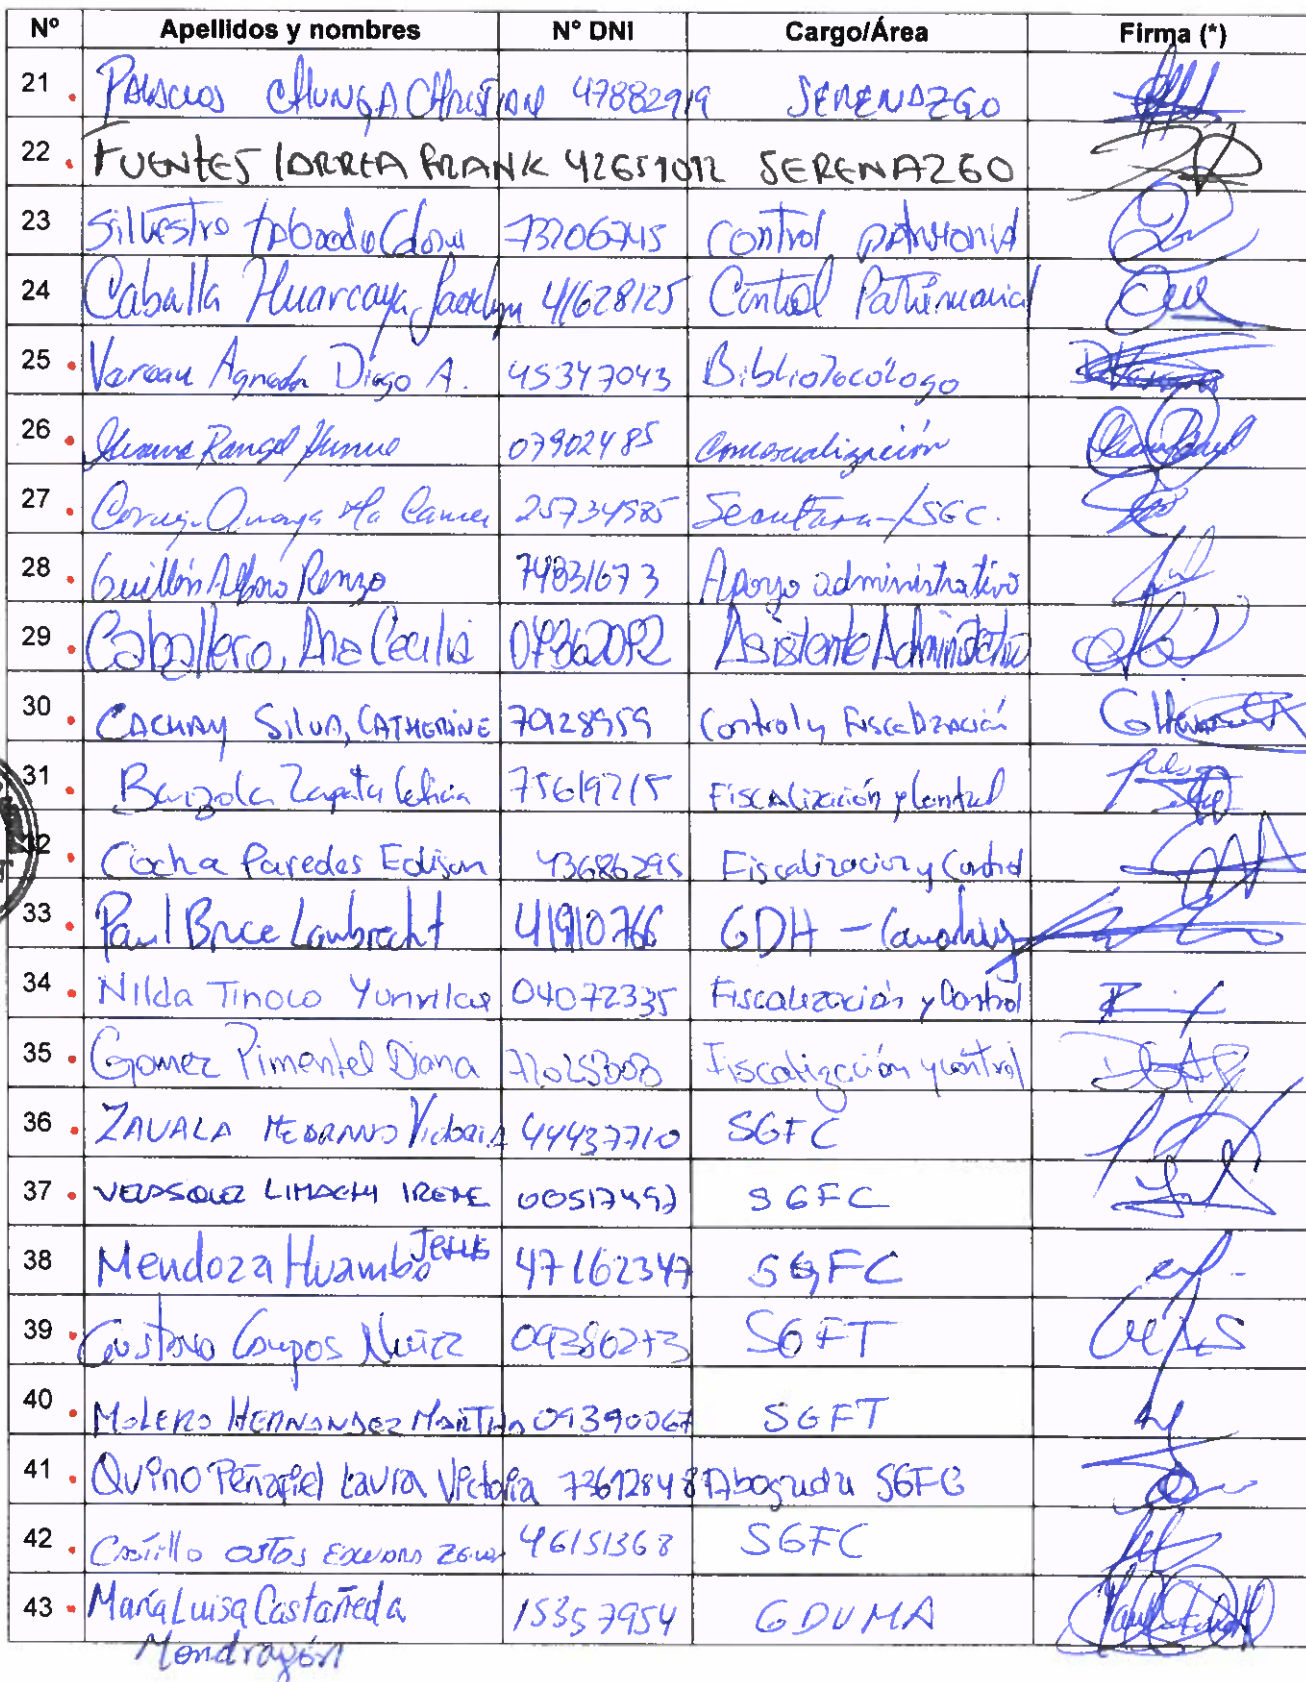 Nº Apellidos y nombres Nº DNI Cargo/Área Firma (*)
21 PALACIOS CHUNGA CHRISTIAN 47882919 SERENAZGO
22 FUENTES CORREA FRANK 42651012 SERENAZGO
23 Silvestro Taboada 73206745 Control PATRIMONIAL
24 Caballa Huarcaya, Jacklyn 41628125 Control Patrimonial
25 Diego A. 45347043 Bibliotecólogo
26 Rangel 07902485 Comercialización
27 Ma Carmen 25734585 Secretaria-/SGC.
28 Guillén Alfaro Renzo 74831673 Apoyo administrativo
29 Caballero, Ana Cecilia 07362092 Asistente Administrativo
30 CACHAY SILVA, CATHERINE 70128959 Control y Fiscalización
31 Barzola Zapata Leticia 75619215 Fiscalización y Control
32 Cocha Paredes Edison 43686295 Fiscalización y Control
33 Paul Bryce Lambrecht 41910766 GDH -
34 Nilda Tinoco 04072335 Fiscalización y Control
35 Gomez Pimentel Diana Fiscalización y control
36 ZAVALA MEDRANO Victoria 44437710 SGFC
37 VELASQUEZ LIMACHI IRENE 00517497 SGFC
38 Mendoza Huambo JESUS 47162347 SGFC
39 Gustavo Campos Nuñez 09380273 SGFT
40 MOLERO HERNANDEZ MARTIN 09390067 SGFT
41 Quino Peñafiel Laura Victoria 73612848 Abogada SGFC
42 Castillo OSTOS 46151368 SGFC
43 María Luisa Castañeda 15357954 GDUMA
Mondragón